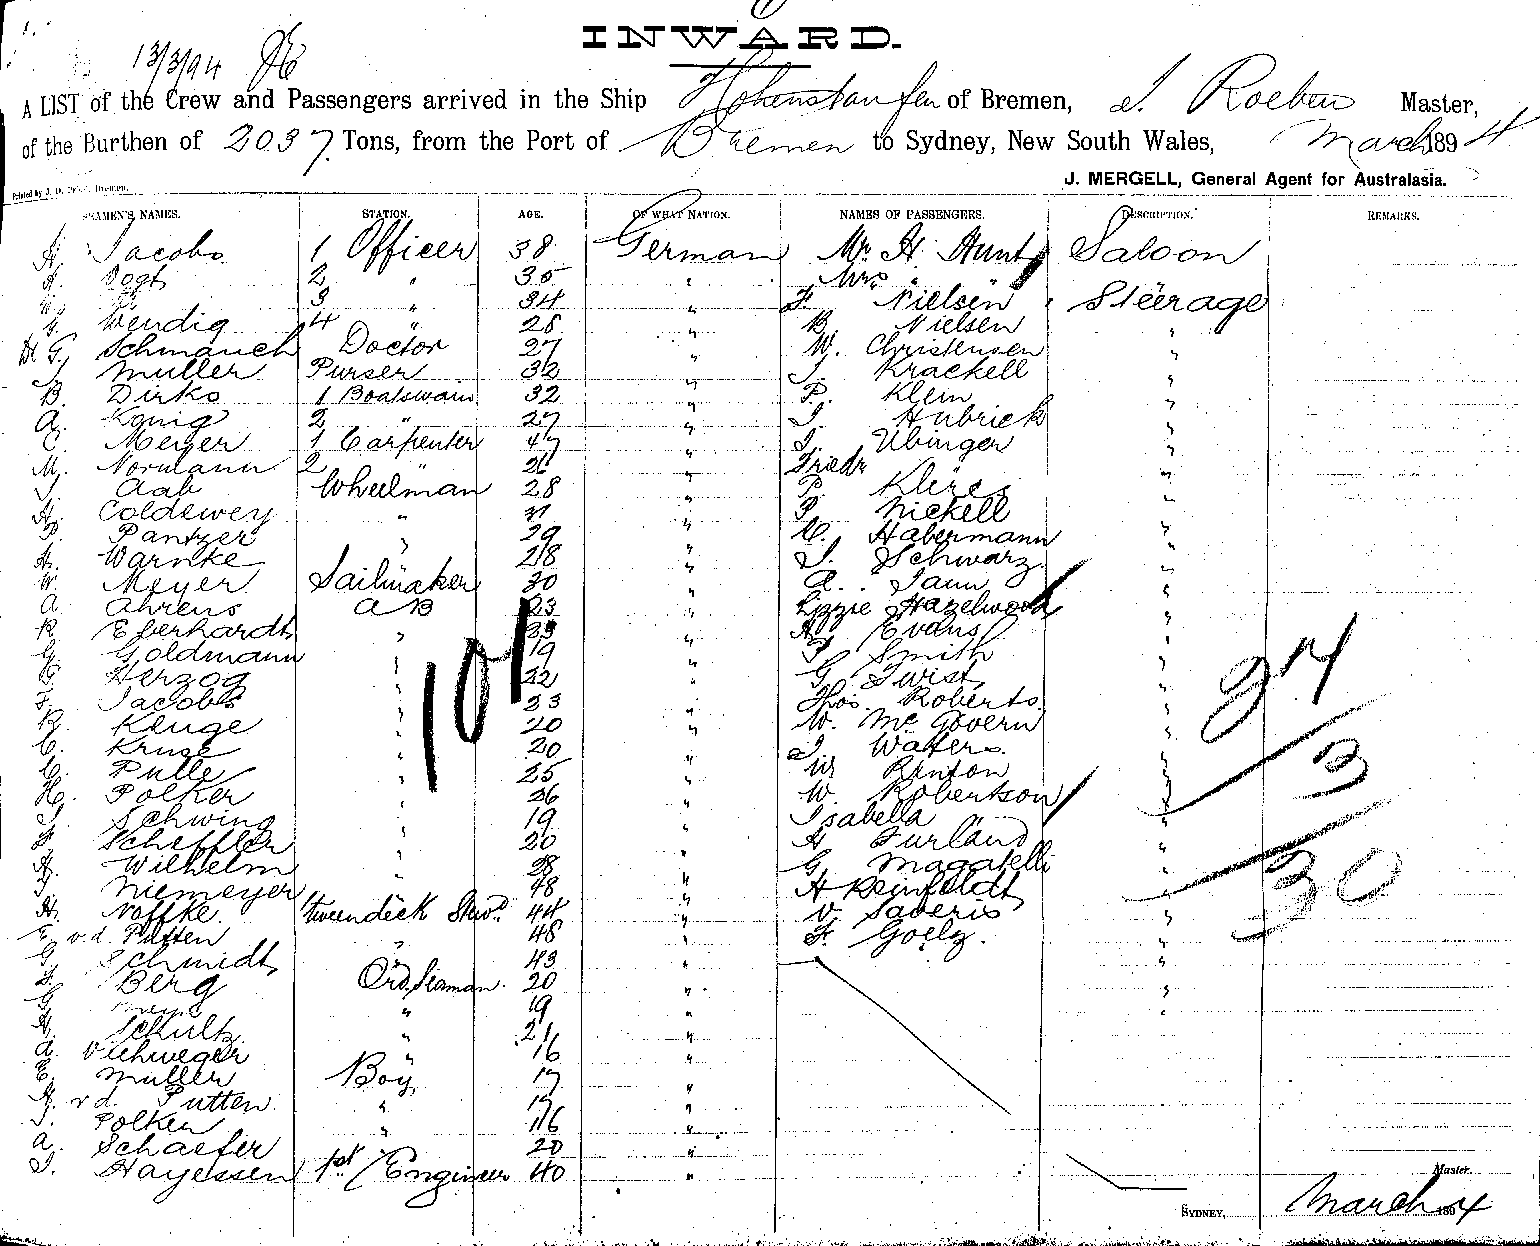 1.
INWARD.
13/3/94
A LIST of the Crew and Passengers arrived in the Ship Hohenstaufen of Bremen, J. Roeben Master,
of the Burthen of 2037 Tons, from the Port of Bremen to Sydney, New South Wales, March 1894
J. MERGELL, General Agent for Australasia.
SEAMEN'S NAMES. STATION. AGE. OF WHAT NATION. NAMES OF PASSENGERS. DESCRIPTION. REMARKS.
H. Jacobs 1 Officer 38 German Mr H. Hunt Saloon
A. Vogt 2 " 35 " Mrs "
3 " 34 " F. Nielsen Steerage
G. Wendig 4 " 28 " B. Nielsen "
Dr G. Schmauch Doctor 27 " W. Christensen "
J. Muller Purser 32 " J. Krackell "
B. Dirks 1 Boatswain 32 " P. Klein "
A. Konig 2 " 27 " J. Hubrich "
C. Meyer 1 Carpenter 47 " J. Ubinger "
M. Normann 2 " 26 " Friedr "
J. Aab Wheelman 28 " P. Kleres "
H. Coldewey " 31 " P. Nickell "
P. Pantzer " 29 " C. Habermann "
H. Warnke " 28 " J. Schwarz "
W. Meyer Sailmaker 30 " A. Jann "
A. Ahrens A B 23 " Lizzie Hazelwood "
R. Eberhardt " 23 " A. Evans "
G. Goldmann " 19 " J. Smith "
C. Herzog " 22 " G. Twist "
F. Jacobs " 23 " Thos. Roberts "
R. Kluge " 20 " W. McGovern "
C. Kruse " 20 " J. Waters "
C. Pulle " 25 " W. Renton "
H. Polker " 26 " W. Robertson "
J. Schwing " 19 " Isabella "
F. Scheffler " 20 " H. Furland "
A. Wilhelm " 28 " G. Magatelli "
J. Niemeyer " 48 " H Reinfeldt "
H. Noffke tweendeck Stwd. 44 " V. Saveris "
E. v.d. Putten " 48 " F. Goelz. "
G. Schmidt " 43 "
F. Berg Ord. Seaman 20 "
G. " 19 "
H. Schultz " 21 "
A. Viehweger " 16 "
E. Muller Boy 17 "
H. v d. Putten " 17 "
J. Polken " 16 "
A. Schaefer 20 "
J. Hayessen 1st Engineer 40 "
101
Master.
SYDNEY, March 1894